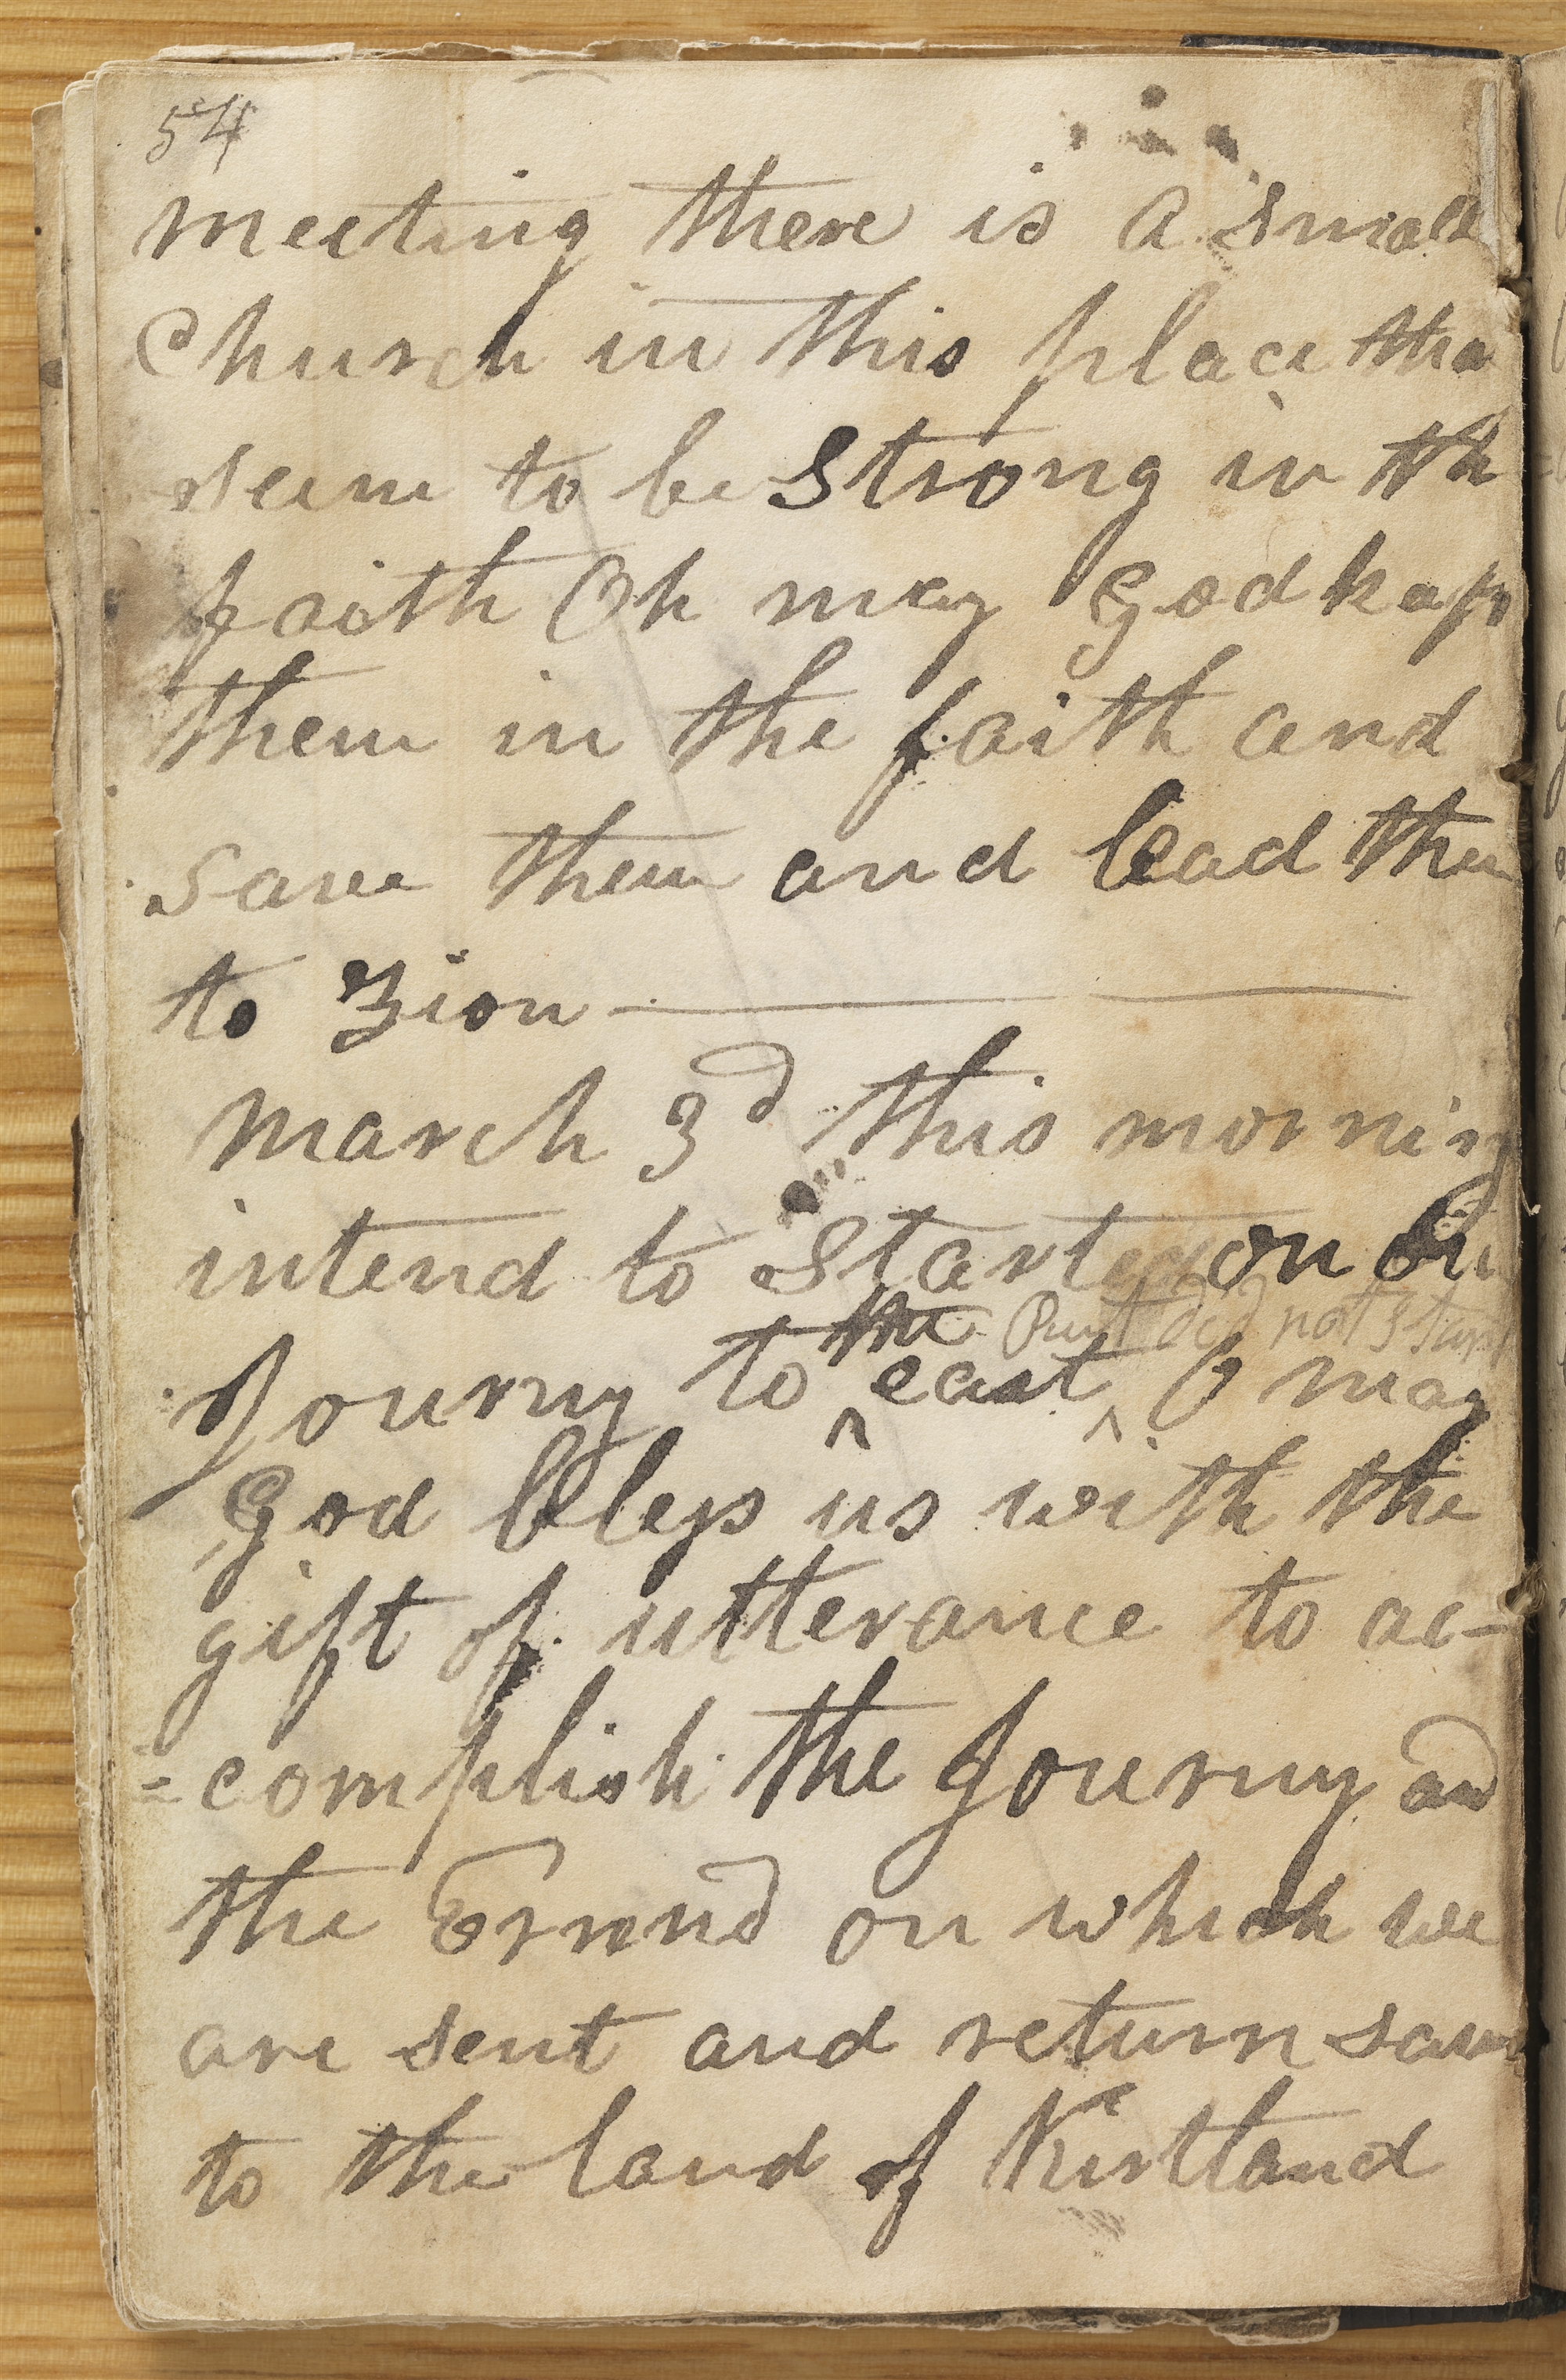 54
meeting there is a small
Church in this place tha
seem to be strong in th
faith Oh may God kep
them in the faith and
save them and lead them
to Zion
March 3d this morning
intend to Started on our
the But did not start
Journy to east O may
God bless us with the
gift of utterance to ac-
=complish the Journy and
the Errand on which we
are sent and return
to the land of Kirtland